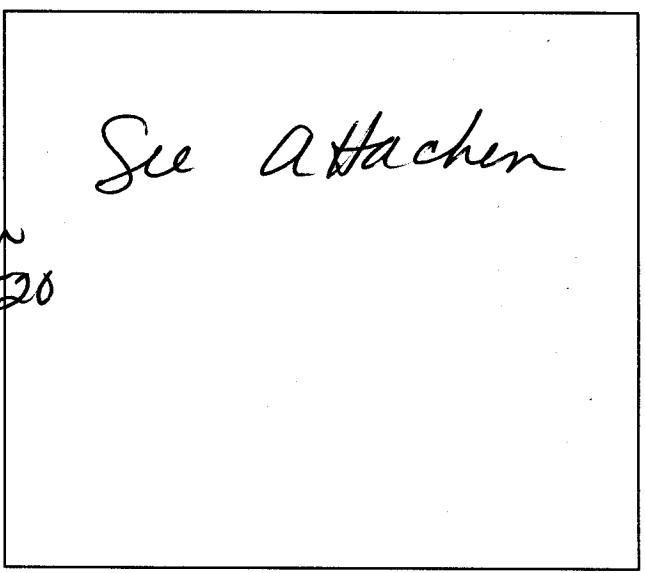 See Attachen
20